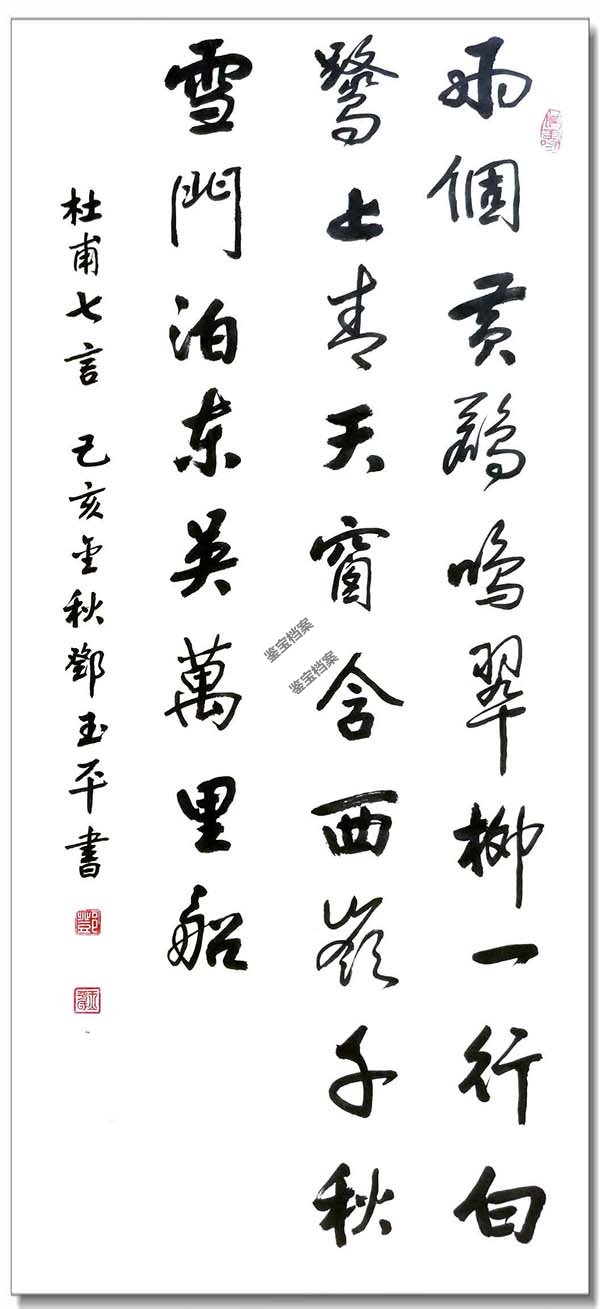 兩個黃鸝鳴翠柳一行白
鷺上青天窗含西嶺子秋
雪門泊東英萬里船
杜甫七言 己亥金秋鄧玉平書
鉴宝档案
鉴宝档案